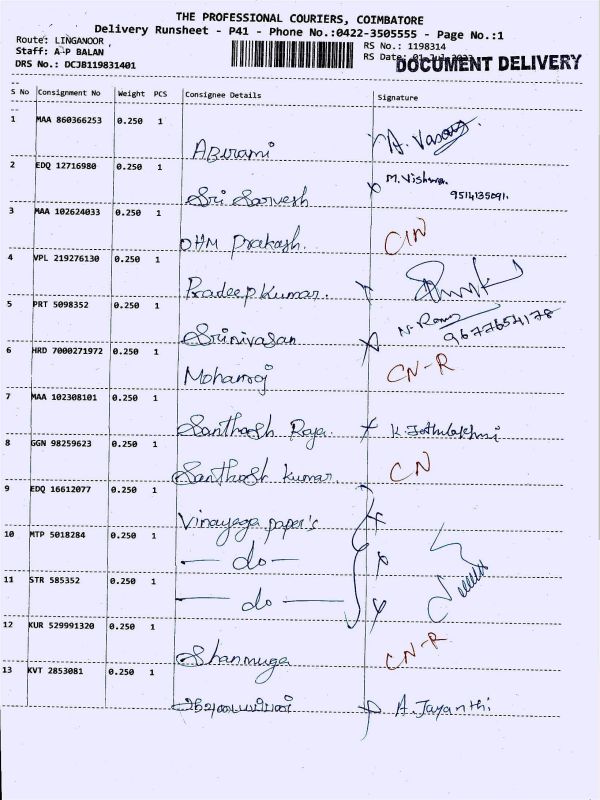 THE PROFESSIONAL COURIERS, COIMBATORE
Delivery Runsheet - P41 - Phone No.:0422-3505555 - Page No.:1
Route: LINGANOOR
RS No.: 1198314
Staff: A-P BALAN
RS Date:
DOCUMENT DELIVERY
DRS No.: DCJB119831401
S No Consignment No Weight PCS Consignee Details Signature
1 MAA 860366253 0.250 1
Abirami A. Vasag
2 EDQ 12716980 0.250 1 M. Vishwa
Sri Sarvesh 9514135091.
3 MAA 102624033 0.250 1
OHM Prakash. CIN
4 VPL 219276130 0.250 1
Pradeep Kumar.
5 PRT 5098352 0.250 1 N. Ramu
Srinivasan 9677654178
6 HRD 7000271972 0.250 1
Mohanraj CN-R
7 MAA 102308101 0.250 1
Santhosh Raja K. Jothulakshmi
8 GGN 98259623 0.250 1
Santhosh Kumar. CN
9 EDQ 16612077 0.250 1
Vinayega paper's
10 MTP 5018284 0.250 1
— do —
11 STR 585352 0.250 1
— do —
12 KUR 529991320 0.250 1
Shanmuga CN-R
13 KVT 2853081 0.250 1
A. Jayanthi